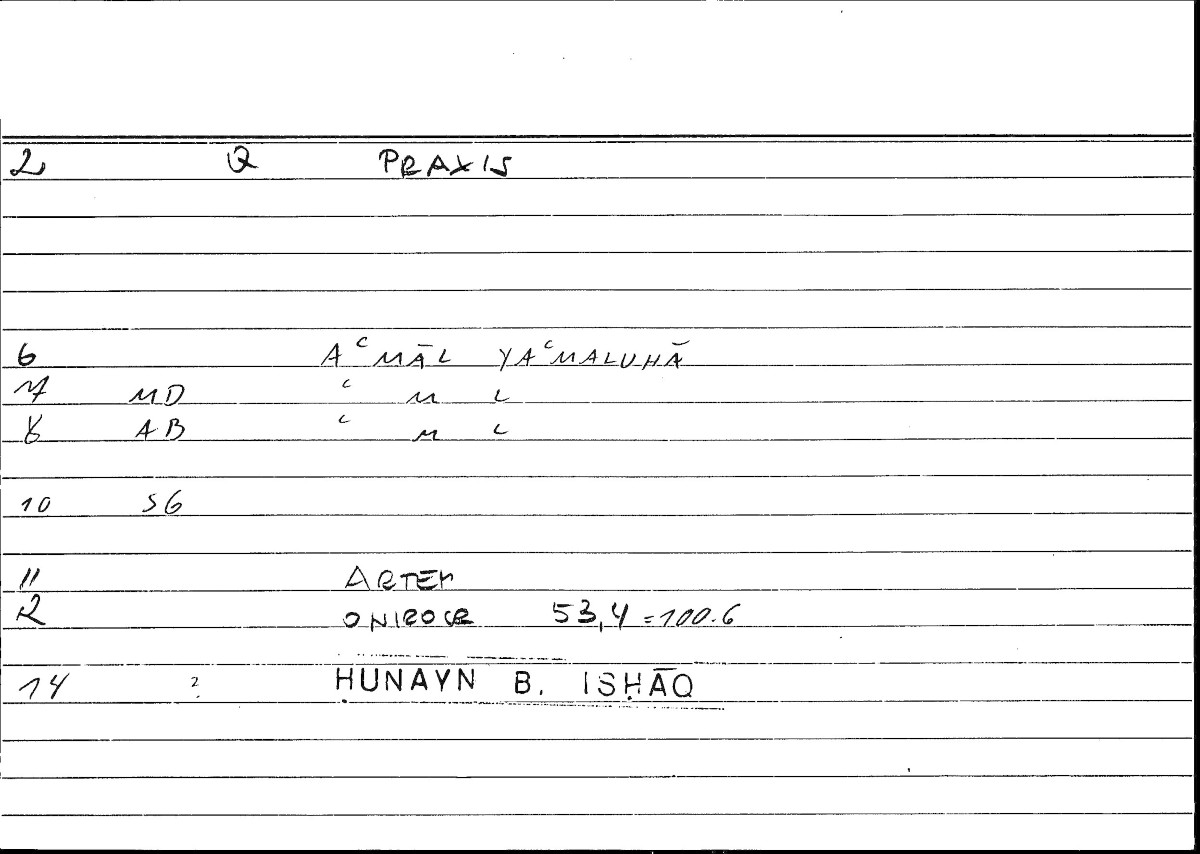 2 Q PRAXIS
6 AʿMĀL YAʿMALUHĀ
7 MD ʿ M L
8 AB ʿ M L
10 SG
11 ARTEM
12 ONIROCR 53,4 = 100.6
14 ? ḤUNAYN B. ISḤĀQ